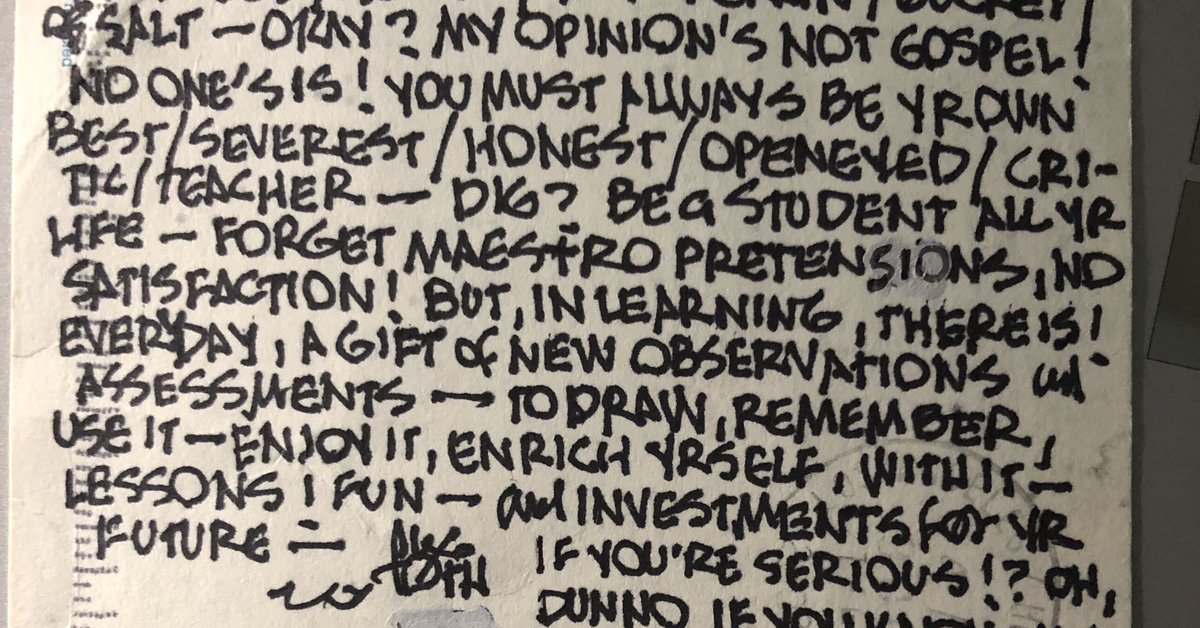 OF SALT — OKAY? MY OPINION'S NOT GOSPEL!
NO ONE'S IS! YOU MUST ALWAYS BE YR OWN
BEST/SEVEREST/HONEST/OPENEYED/CRI-
TIC/TEACHER — DIG? BE A STUDENT ALL YR
LIFE — FORGET MAESTRO PRETENSIONS, NO
SATISFACTION! BUT, IN LEARNING, THERE IS!
EVERYDAY, A GIFT of NEW OBSERVATIONS and
ASSESSMENTS — TO DRAW, REMEMBER,
USE IT — ENJOY IT, ENRICH YRSELF, WITH IT —
LESSONS! FUN — and INVESTMENTS for YR
FUTURE —
ALEX
TOTH
IF YOU'RE SERIOUS!? OH,
DUNNO IF YOU